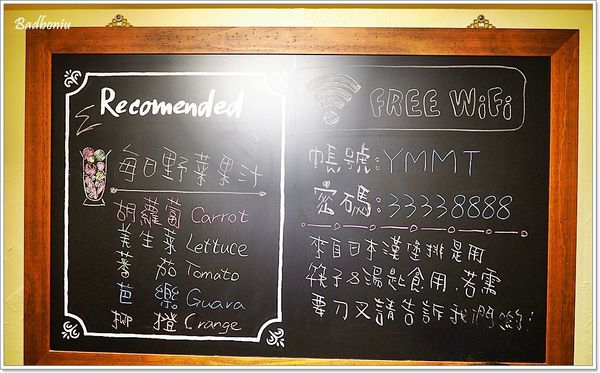 Badboniu
Recomended
每日野菜果汁
胡蘿蔔 Carrot
美生菜 Lettuce
蕃茄 Tomato
芭樂 Guava
柳橙 Orange
FREE WiFi
帳號:YMMT
密碼:33338888
來自日本漢堡排是用
筷子&湯匙食用.若需
要刀叉請告訴我們